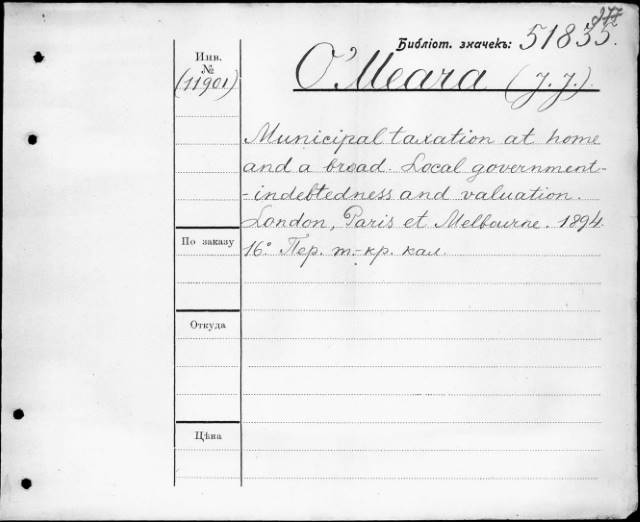 Библіот. значекъ: 51835.
Инв.
№
(11901)
O'Meara (J. J.).
Municipal taxation at home
and a broad. Local government-
-indebtedness and valuation.
London, Paris et Melbourne. 1894.
16°. Пер. т.-кр. кал.
По заказу
Откуда
Цѣна